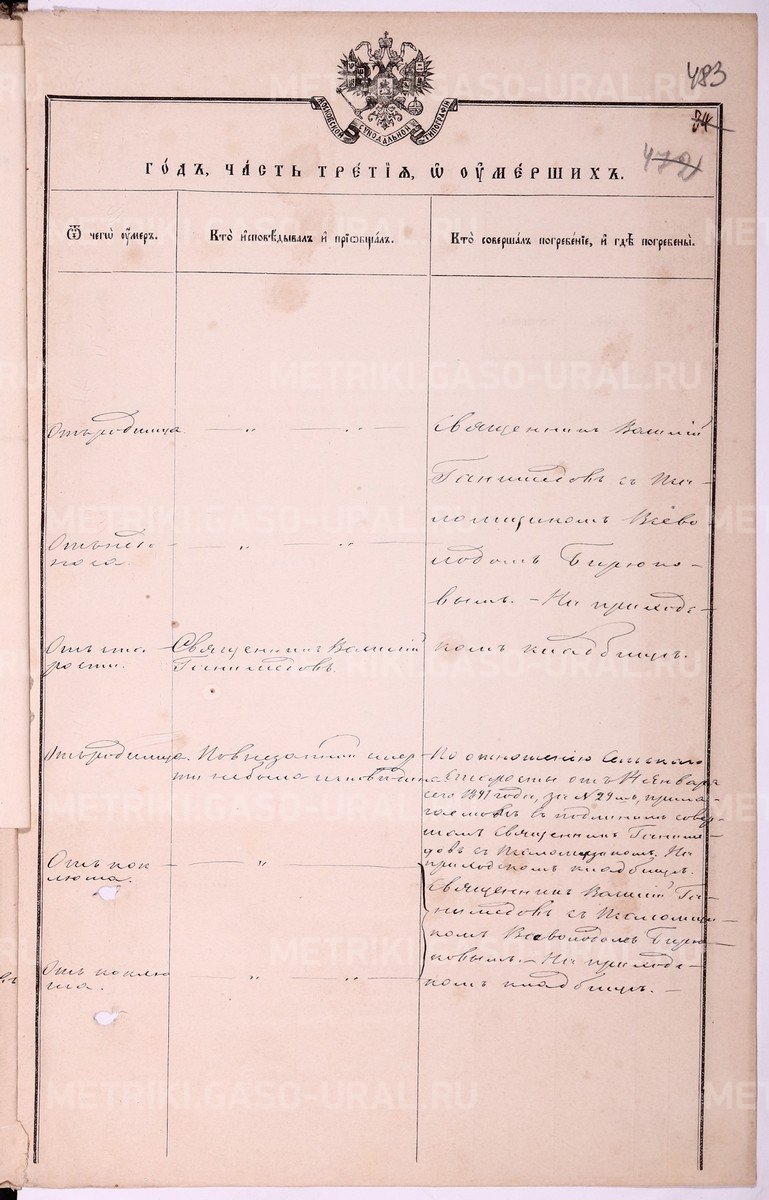 483
34
472
МОСКОВСКОЙ СѴНОДАЛЬНОЙ ТИПОГРАФІИ
ГО́ДЪ, ЧА́СТЬ ТРЕ́ТІѦ, Ѡ҆ ОУ҆МЕ́РШИХЪ.
Ѿ чегѡ̀ оу҆́меръ.
Кто̀ и҆сповѣ́дывалъ и҆ прїѡбща́лъ.
Кто̀ соверша́лъ погребе́нїе, и҆ гдѣ̀ погребены̀.
Отъ родимца
Священникъ Василій
Ганимедовъ съ Пса-
ломщикомъ Всево
лодомъ Бирюко-
вымъ. - На приходс-
комъ кладбищѣ.
Отъ
Отъ ста
рости.
Священникъ Василій
Ганимедовъ.
Отъ родимца.
По внезапной смер
ти не была исповѣдана
По отношенію Сельскаго
Старосты отъ 4 Января
сего 1891 года, за № 29мъ,
съ подлиннымъ совер-
шалъ Священникъ Ганиме-
довъ съ Псаломщикомъ. На
приходскомъ кладбищѣ.
Отъ кок-
люша.
Священникъ Василій Га-
нимедовъ съ Псаломщи-
комъ Всеволодомъ Бирю-
ковымъ. - На приходс-
комъ кладбищѣ. -
Отъ коклю
ша.
METRIKI.GASO-URAL.RU